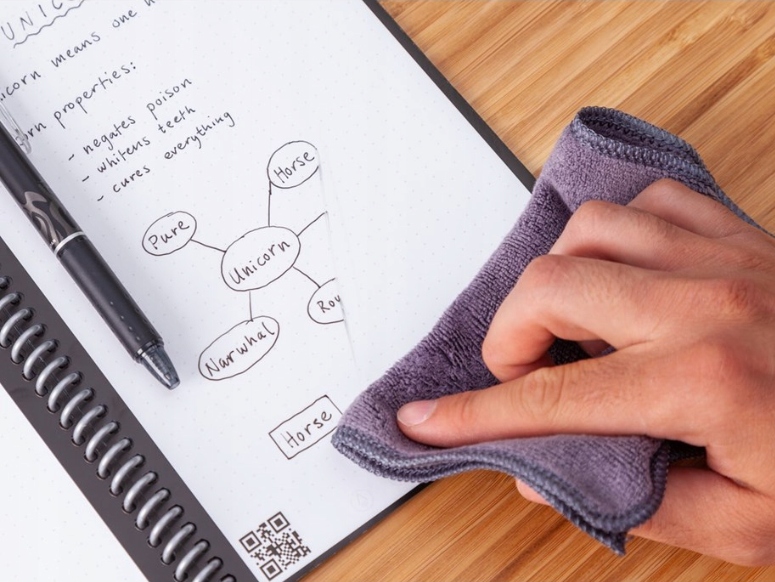 UNIC
icorn means one h
rn properties:
- negates poison
- whitens teeth
- cures everything
Horse
Pure
Unicorn
Roy
Narwhal
Horse